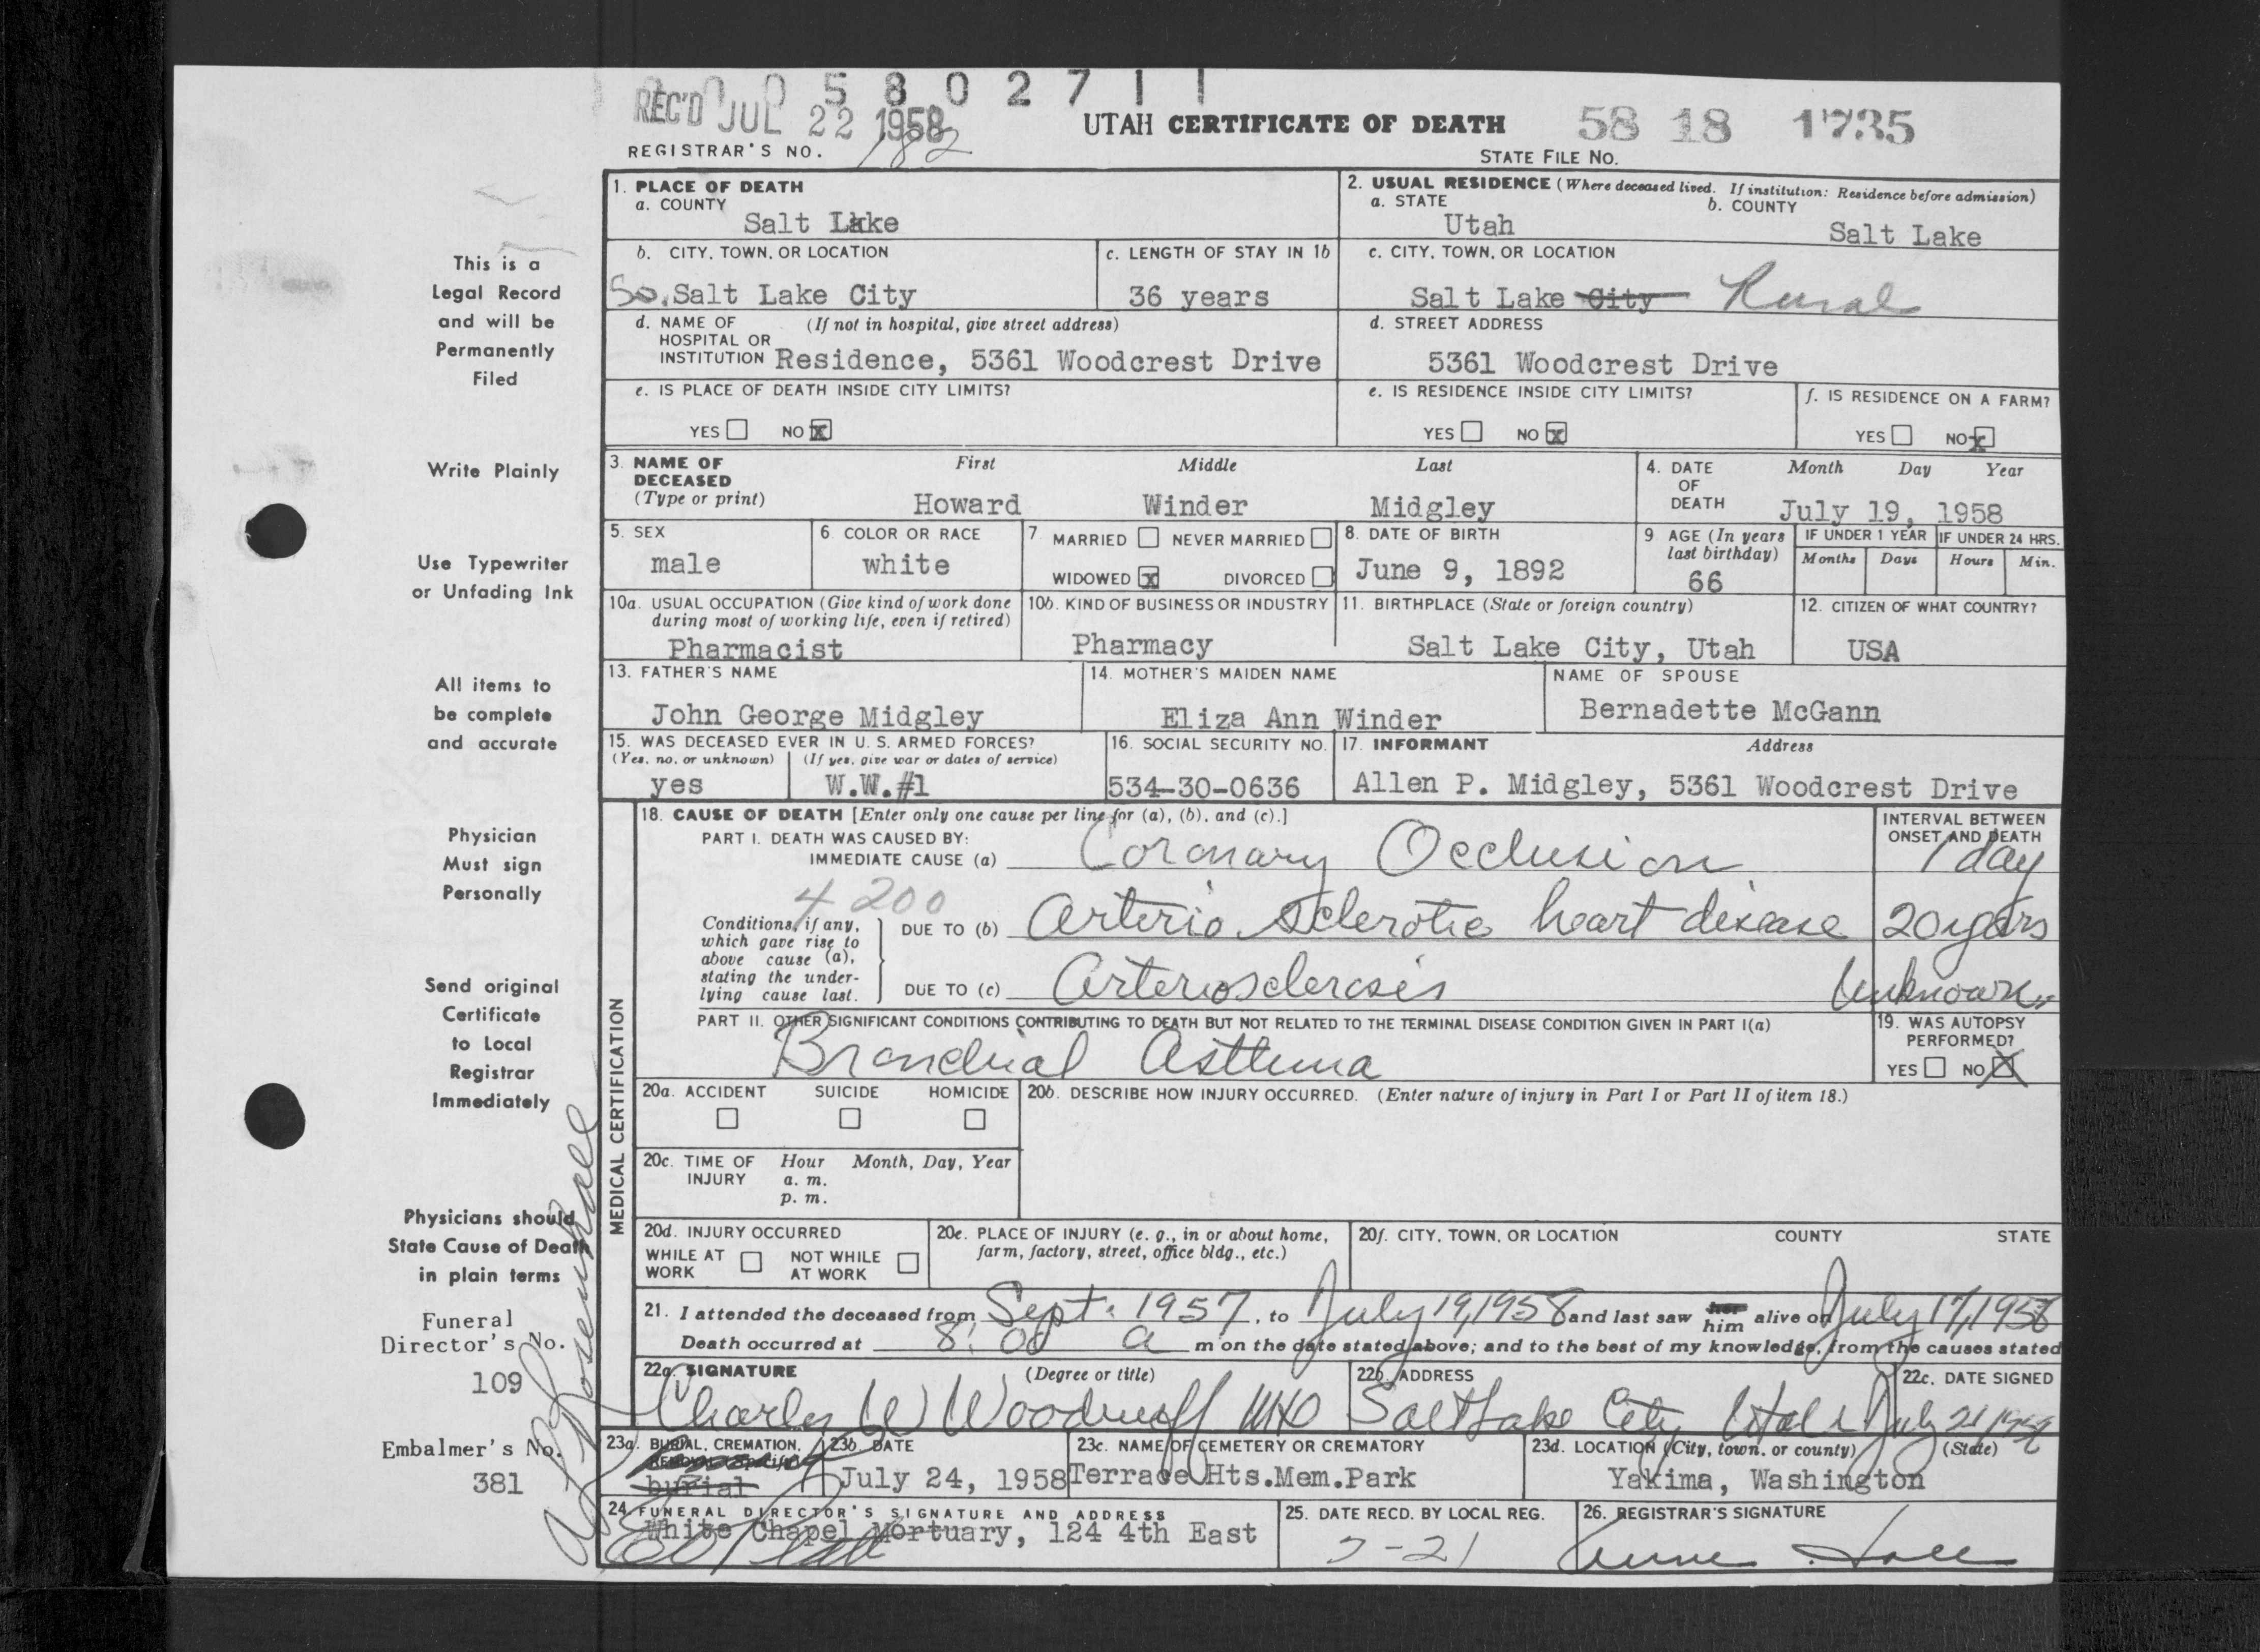 0 0 5 8 0 2 7 1 1
REC'D JUL 22 1958
UTAH CERTIFICATE OF DEATH
58 18 1735
REGISTRAR'S NO. 182
STATE FILE NO.
1. PLACE OF DEATH
a. COUNTY
Salt Lake
2. USUAL RESIDENCE (Where deceased lived. If institution: Residence before admission)
a. STATE
Utah
b. COUNTY
Salt Lake
b. CITY, TOWN, OR LOCATION
So. Salt Lake City
c. LENGTH OF STAY IN 1b
36 years
c. CITY, TOWN, OR LOCATION
Salt Lake City Rural
d. NAME OF HOSPITAL OR INSTITUTION (If not in hospital, give street address)
Residence, 5361 Woodcrest Drive
d. STREET ADDRESS
5361 Woodcrest Drive
e. IS PLACE OF DEATH INSIDE CITY LIMITS?
YES NO X
e. IS RESIDENCE INSIDE CITY LIMITS?
YES NO X
f. IS RESIDENCE ON A FARM?
YES NO X
3. NAME OF DECEASED
(Type or print)
First Middle Last
Howard Winder Midgley
4. DATE OF DEATH
Month Day Year
July 19, 1958
5. SEX
male
6. COLOR OR RACE
white
7 MARRIED NEVER MARRIED
WIDOWED X DIVORCED
8. DATE OF BIRTH
June 9, 1892
9 AGE (In years last birthday)
66
IF UNDER 1 YEAR
Months Days
IF UNDER 24 HRS.
Hours Min.
10a. USUAL OCCUPATION (Give kind of work done during most of working life, even if retired)
Pharmacist
10b. KIND OF BUSINESS OR INDUSTRY
Pharmacy
11. BIRTHPLACE (State or foreign country)
Salt Lake City, Utah
12. CITIZEN OF WHAT COUNTRY?
USA
13. FATHER'S NAME
John George Midgley
14. MOTHER'S MAIDEN NAME
Eliza Ann Winder
NAME OF SPOUSE
Bernadette McGann
15. WAS DECEASED EVER IN U. S. ARMED FORCES?
(Yes, no, or unknown) (If yes, give war or dates of service)
yes W.W.#1
16. SOCIAL SECURITY NO.
534-30-0636
17. INFORMANT Address
Allen P. Midgley, 5361 Woodcrest Drive
MEDICAL CERTIFICATION
18. CAUSE OF DEATH [Enter only one cause per line for (a), (b), and (c).]
PART I. DEATH WAS CAUSED BY:
IMMEDIATE CAUSE (a) Coronary Occlusion
INTERVAL BETWEEN ONSET AND DEATH
1 day
4200
Conditions, if any, which gave rise to above cause (a), stating the underlying cause last.
DUE TO (b) Arterio Sclerotic heart disease 20 years
DUE TO (c) Arteriosclerosis Unknown
PART II. OTHER SIGNIFICANT CONDITIONS CONTRIBUTING TO DEATH BUT NOT RELATED TO THE TERMINAL DISEASE CONDITION GIVEN IN PART I(a)
Bronchial Asthma
19. WAS AUTOPSY PERFORMED?
YES NO X
20a. ACCIDENT SUICIDE HOMICIDE
20b. DESCRIBE HOW INJURY OCCURRED. (Enter nature of injury in Part I or Part II of item 18.)
20c. TIME OF INJURY Hour Month, Day, Year
a. m.
p. m.
20d. INJURY OCCURRED
WHILE AT WORK NOT WHILE AT WORK
20e. PLACE OF INJURY (e. g., in or about home, farm, factory, street, office bldg., etc.)
20f. CITY, TOWN, OR LOCATION COUNTY STATE
21. I attended the deceased from Sept. 1957, to July 19, 1958 and last saw her him alive on July 17, 1958
Death occurred at 8:00 a m on the date stated above; and to the best of my knowledge, from the causes stated
22a. SIGNATURE (Degree or title)
Charles W Woodruff MD
22b. ADDRESS
Salt Lake City, Utah
22c. DATE SIGNED
July 21, 1958
23a. BURIAL, CREMATION, REMOVAL (Specify)
burial
23b. DATE
July 24, 1958
23c. NAME OF CEMETERY OR CREMATORY
Terrace Hts.Mem.Park
23d. LOCATION (City, town, or county) (State)
Yakima, Washington
24. FUNERAL DIRECTOR'S SIGNATURE AND ADDRESS
White Chapel Mortuary, 124 4th East
25. DATE RECD. BY LOCAL REG.
7-21
26. REGISTRAR'S SIGNATURE
This is a
Legal Record
and will be
Permanently
Filed
Write Plainly
Use Typewriter
or Unfading Ink
All items to
be complete
and accurate
Physician
Must sign
Personally
Send original
Certificate
to Local
Registrar
Immediately
Physicians should
State Cause of Death
in plain terms
Funeral
Director's No.
109
Embalmer's No.
381